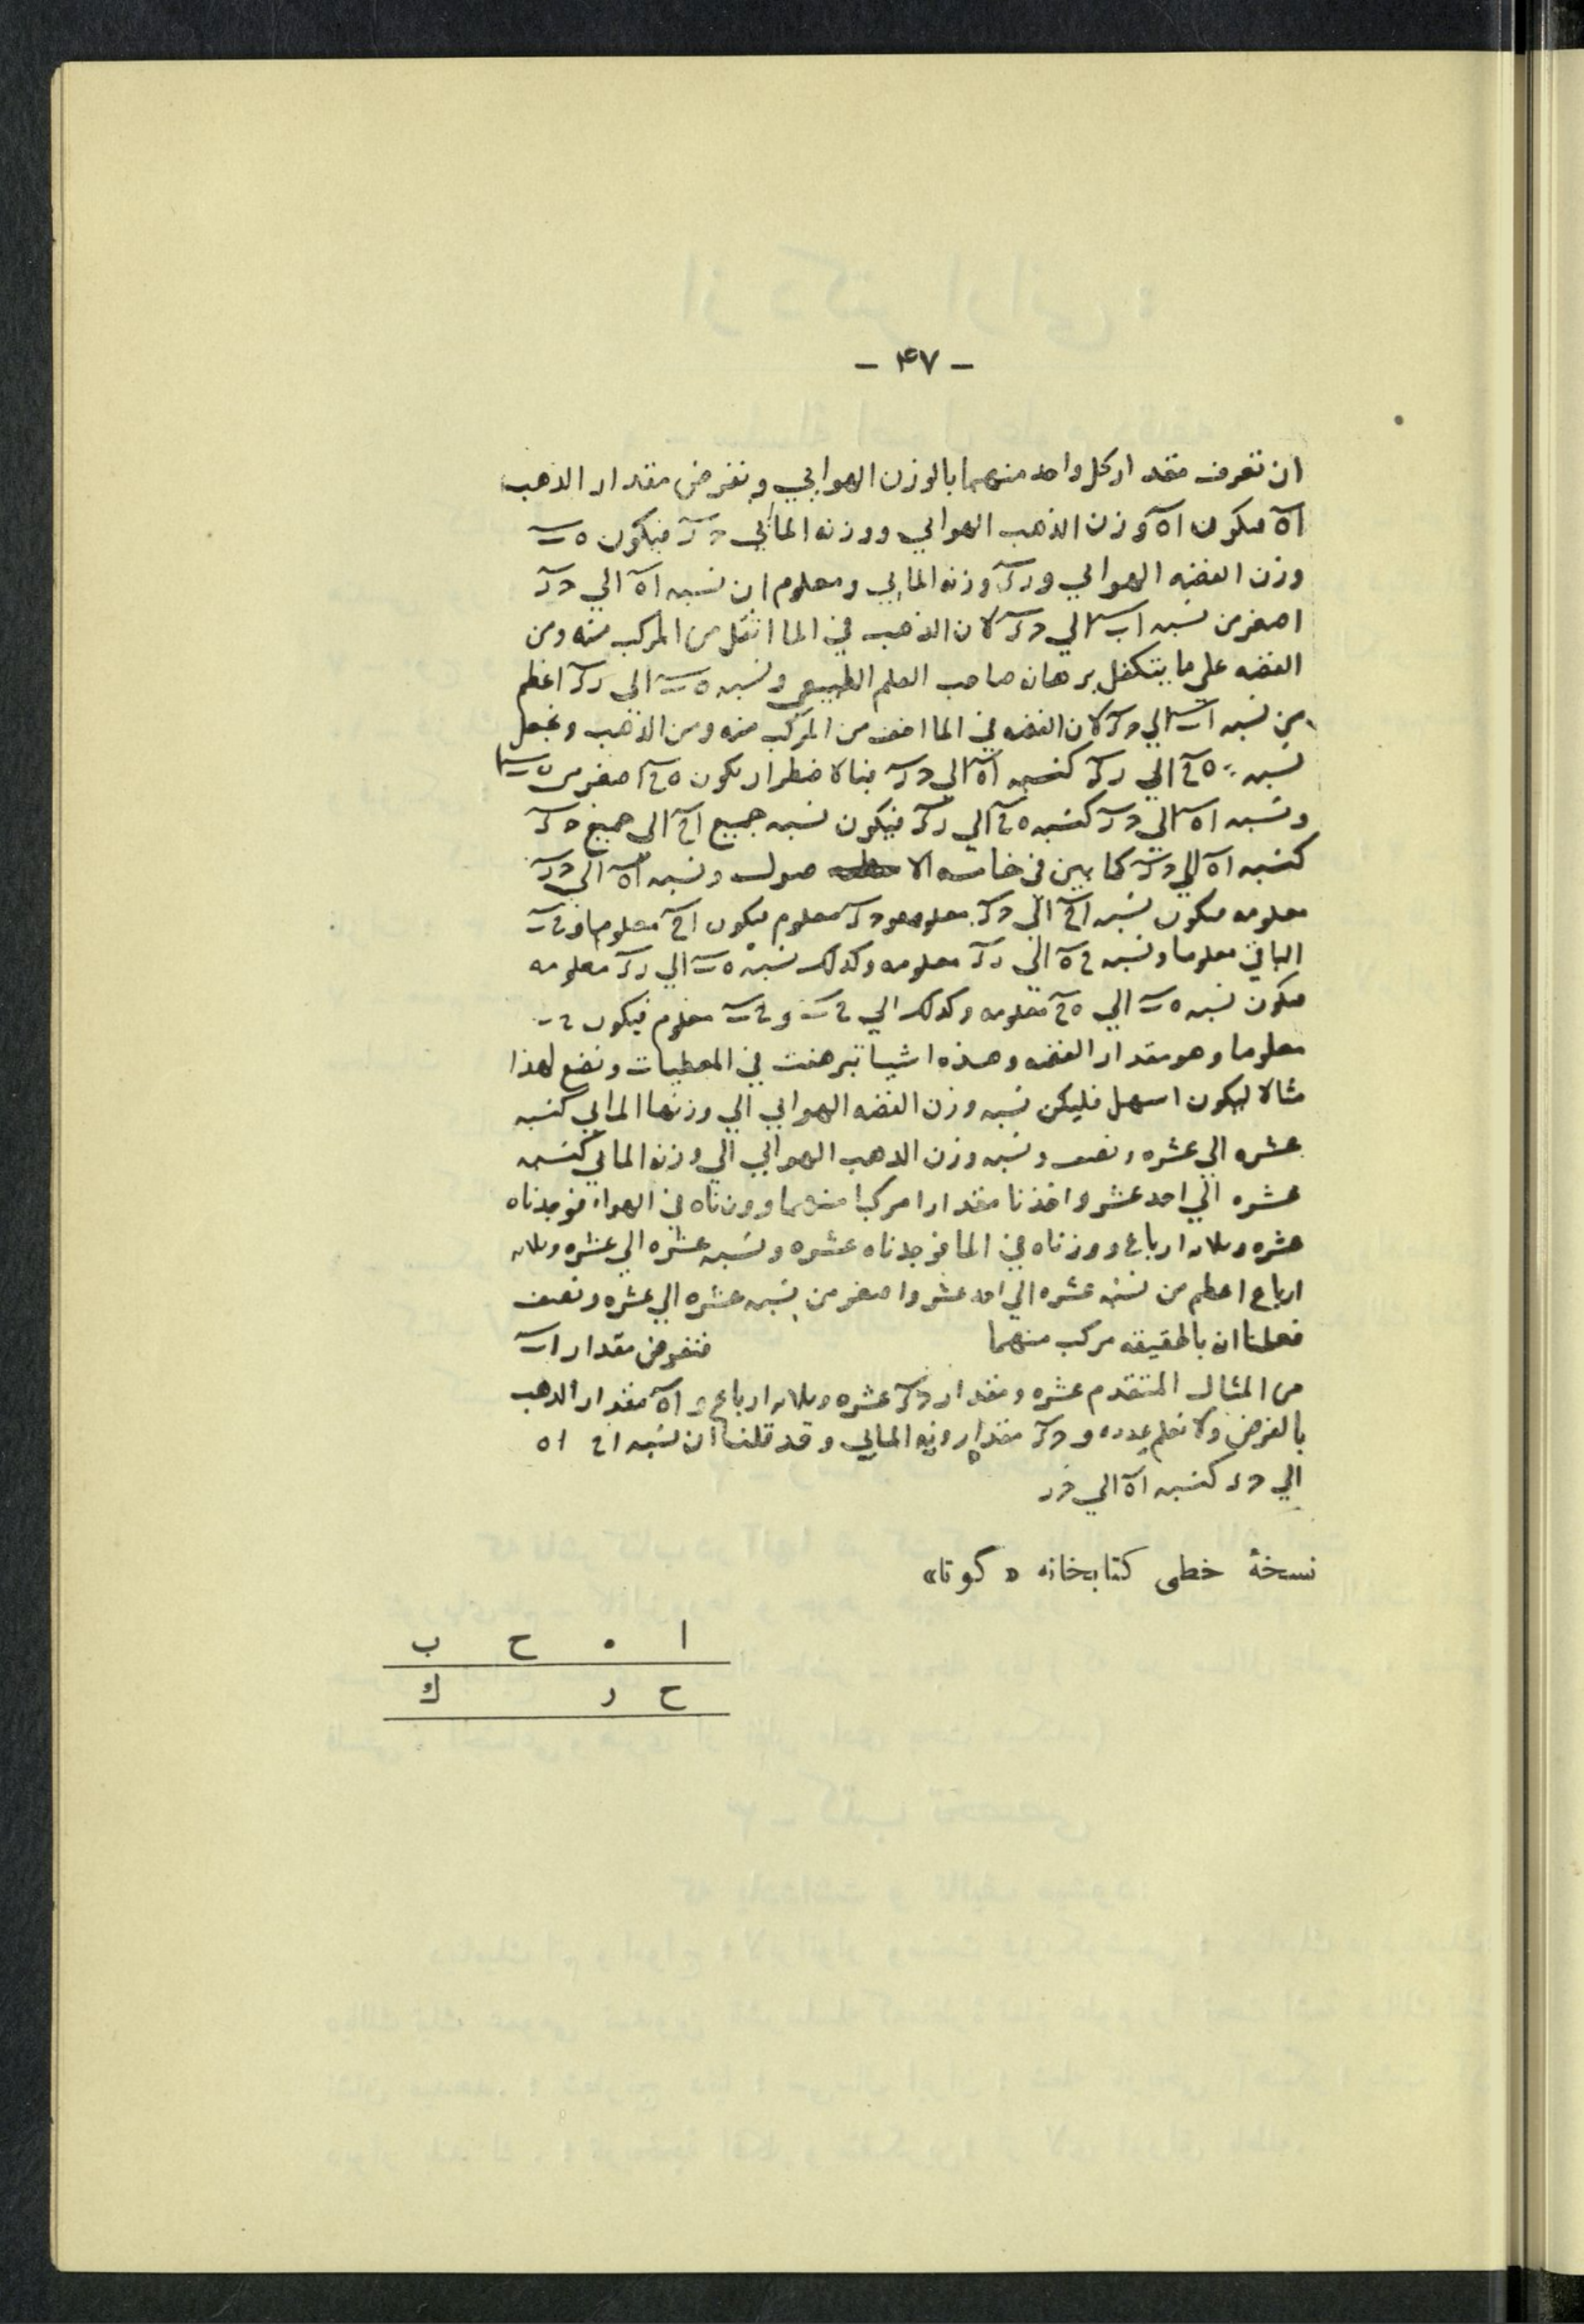 - ۴۷ -
ان نعرف مقدار كل واحد منهما بالوزن الهوايي ونفرض مقدار الذهب
اه فيكون اه وزن الذهب الهوايي ووزنه المائي حر فيكون ه ب
وزن الفضه الهوايي ورك وزنه المايي ومعلوم ان نسبه اه الي حر
اصغر من نسبه اب الي حك لان الذهب في الما اثقل من المركب منه ومن
الفضه علي ما يتكفل برهانه صاحب العلم الطبيعي ونسبه ه ب الي رك اعظم
من نسبه اب الي حك لان الفضه في الما اخف من المركب منه ومن الذهب ونجعل
نسبه ه ح الي رك كنسبه اه الي حر فبالاضطرار يكون ه ح اصغر من ه ب
ونسبه اه الي حر كنسبه ه ح الي رك فيكون نسبه جميع اح الي جميع حك
كنسبه اه الي حر كما بين في خامسه الا صول ونسبه اه الي حر
معلومه فيكون نسبه اح الي حك معلومه وحك معلوم فيكون اح معلوما وح ب
الباقي معلوما ونسبه ح ه الي رك معلومه وكذلك نسبه ه ب الي رك معلومه
فيكون نسبه ه ب الي ه ح معلومه وكذلك الي ح ب وح ب معلوم فيكون
معلوما وهو مقدار الفضه وهذه اشيا تبرهنت في المعطيات ونضع لهذا
مثالا ليكون اسهل فليكن نسبه وزن الفضه الهوايي الي وزنها المايي كنسبه
عشره الي عشره ونصف ونسبه وزن الذهب الهوايي الي وزنه المائي كنسبه
عشره الي احد عشر واخذنا مقدارا مركبا منهما ووزناه في الهواء فوجدناه
عشره وثلاثه ارباع ووزناه في الما فوجدناه عشره ونسبه عشره الي عشره وثلاثه
ارباع اعظم من نسبه عشره الي احد عشر واصغر من نسبه عشره الي عشره ونصف
فعلمنا انه بالحقيقه مركب منهما فنفرض مقدار اب
من المثال المتقدم عشره ومقدار حك عشره وثلاثه ارباع و اه مقدار الذهب
بالفرض ولا نعلم عدده و حر مقدار وزنه المايي وقد قلنا ان نسبه اح اه
الي حر كنسبه اه الي حر
نسخهٔ خطی کتابخانه « گوتا»
ا ه ح ب
ح ر ك